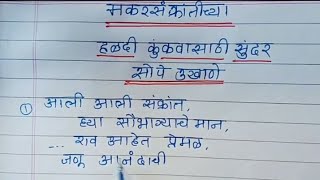 मकरसंक्रांतीच्या
हळदी कुंकवासाठी सुंदर
सोपे उखाणे
① आली आली संक्रांत,
ह्या सौभाग्याचे मान,
... राव आहेत प्रेमळ,
जणू आनंदाची